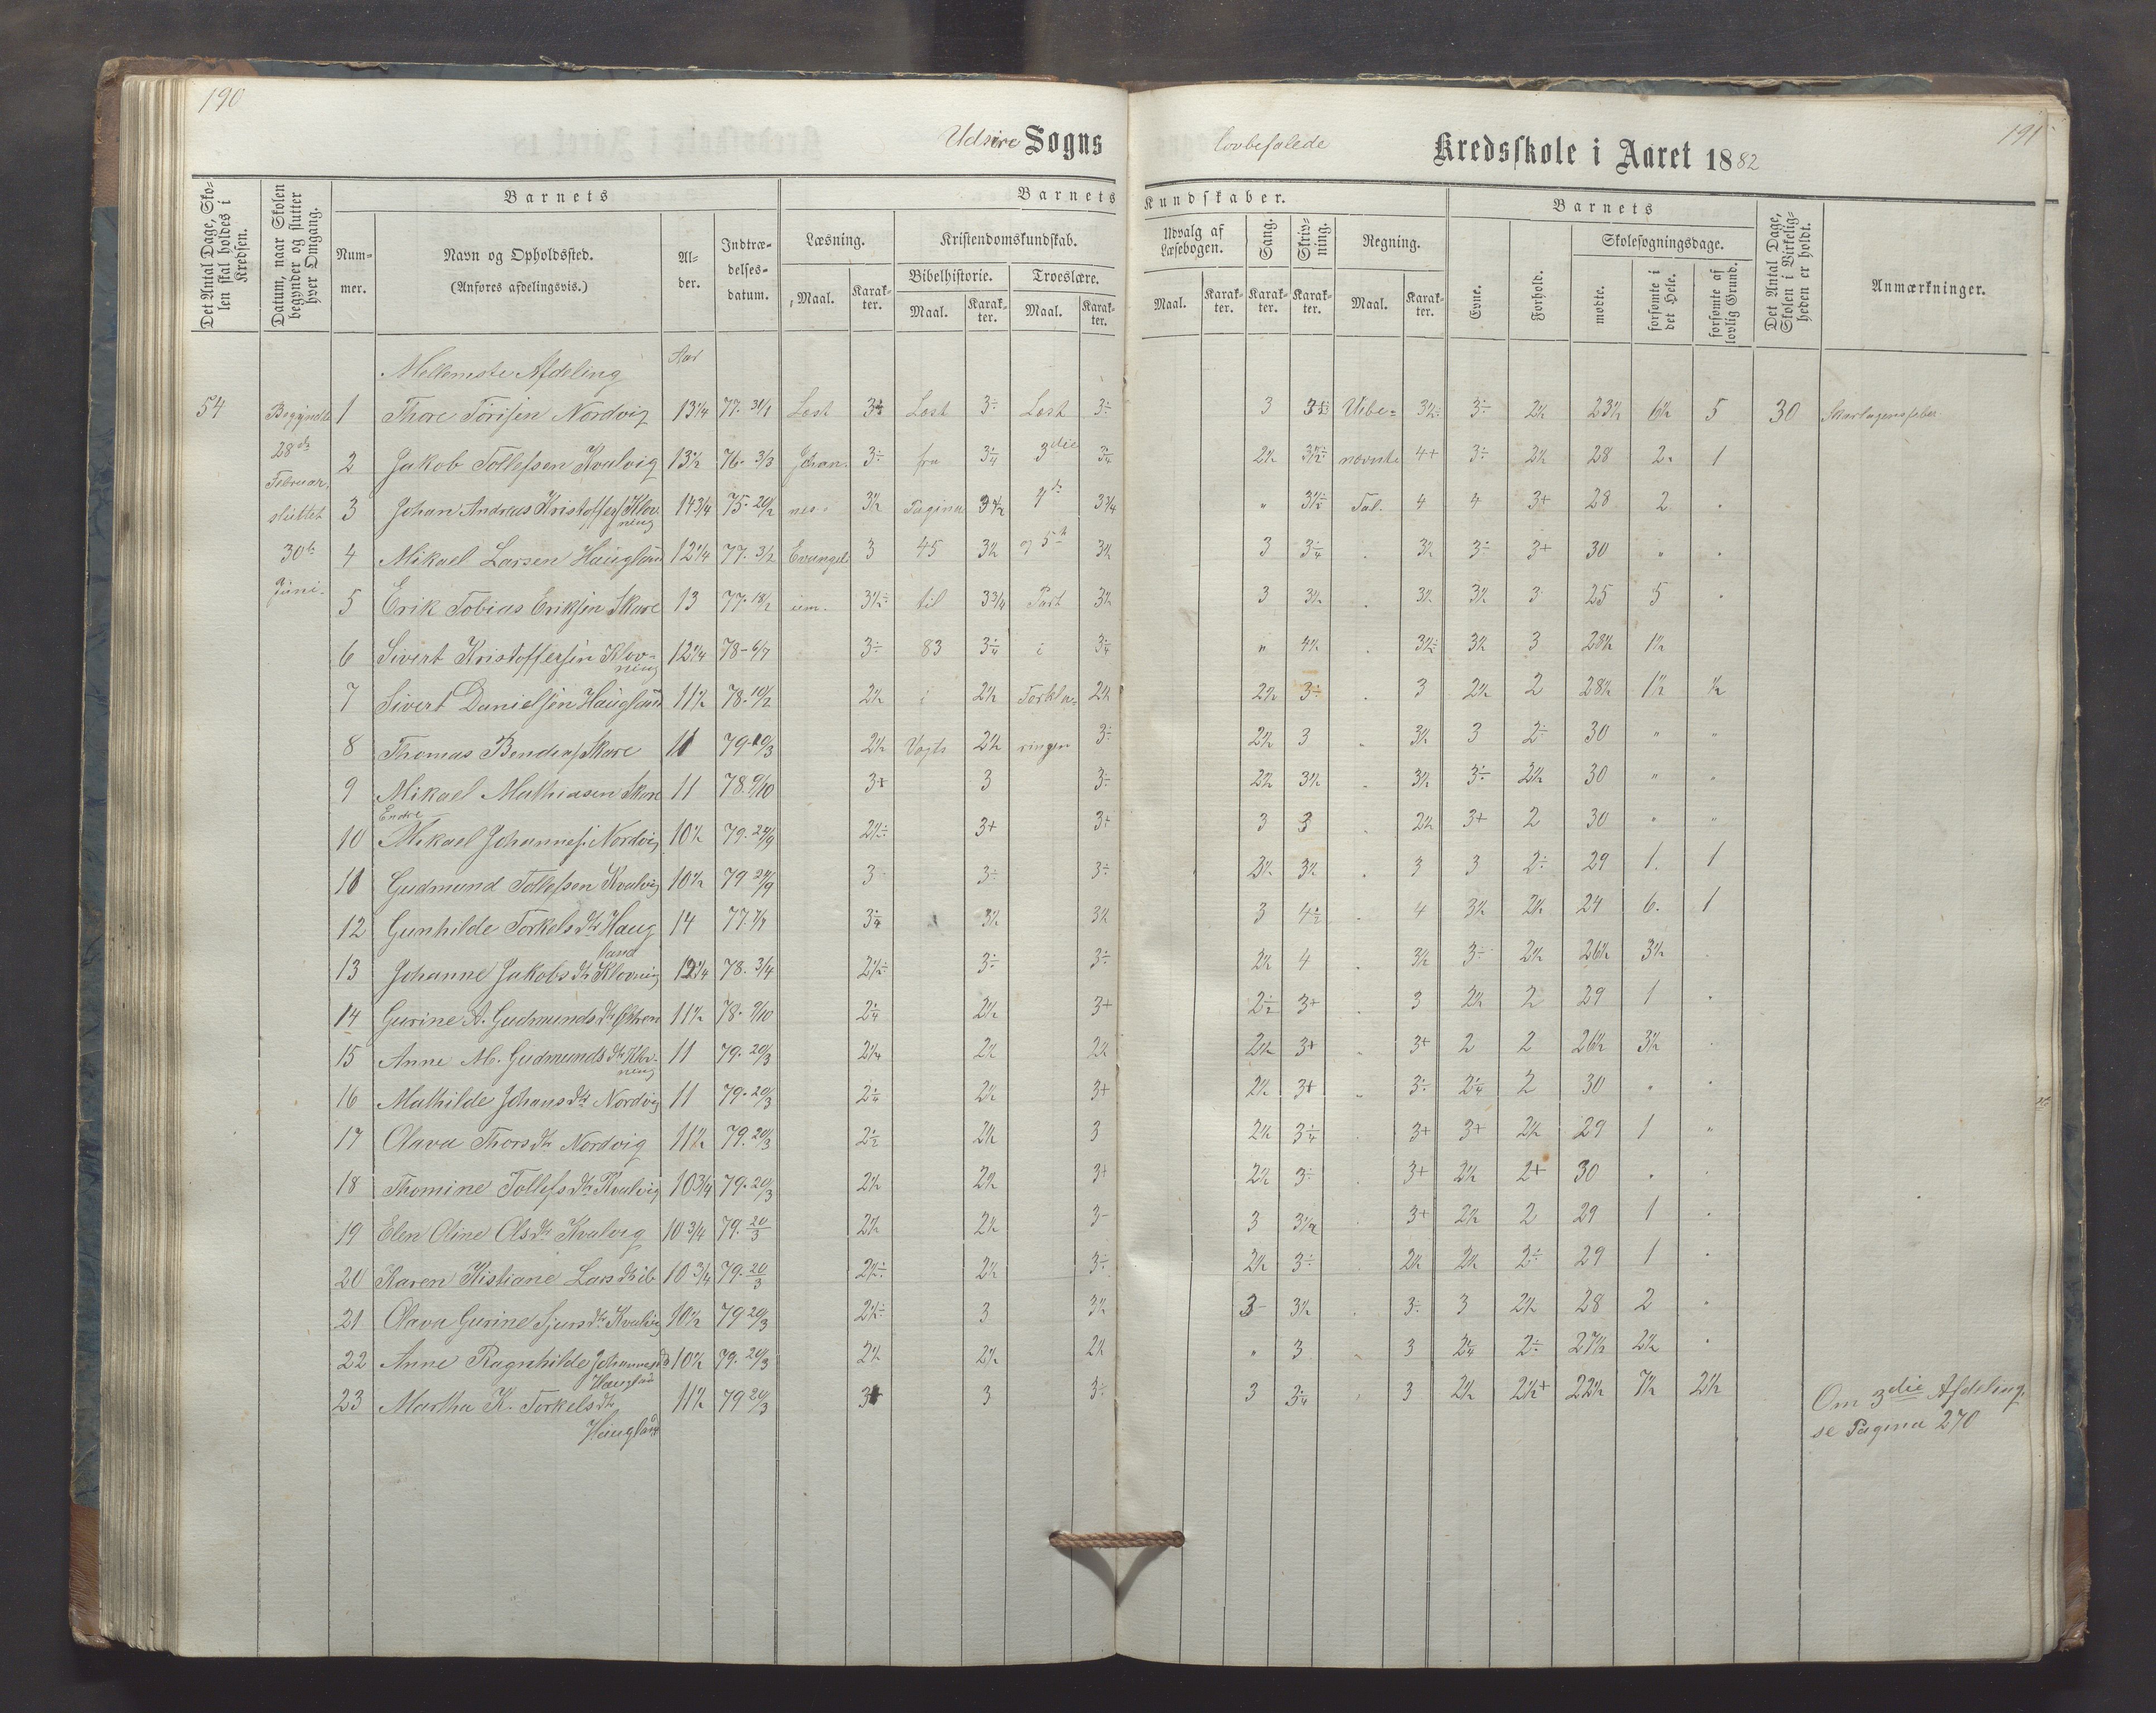 190
Udsire Sogns
lovbefalede
Kredsskole i Aaret 1882
191
Det Antal Dage, Skolen skal holdes i Kredsen.
Datum, naar Skolen begynder og slutter hver Omgang.
Barnets
Nummer.
Navn og Opholdssted.
(Anføres afdelingsvis.)
Alder.
Indtrædelsesdatum.
Barnets Kundskaber.
Læsning.
Maal. Karakter.
Kristendomskundskab.
Bibelhistorie. Troeslære.
Maal. Karakter. Maal. Karakter.
Udvalg af Læsebogen.
Maal. Karakter.
Sang. Karakter.
Skrivning. Karakter.
Regning.
Maal. Karakter.
Barnets
Evne. Forhold.
Skolesøgningsdage.
mødte. forsømte i det Hele. forsømte af lovlig Grund.
Det Antal Dage, Skolen i Virkeligheden er holdt.
Anmærkninger.
Mellemste Afdeling Aar
54 Begyndte 1 Thore Torisen Nordvig 13 1/4 77. 31/1 Læst Læst 3÷ Læst 3÷ 3 Ube= 3÷ 2½ 23½ 6½ 5 30 Skarlagensfeber
28de Februar, 2 Jakob Tollefsen Kvalvig 13½ 76. 3/3 Johan- 3÷ fra 3¼ 3die 3¼ 2½ nævnte 4+ 3÷ 2½ 28 2 1
sluttet 3 Johan Andreas Kristoffers. Klovning 14 3/4 75. 20/2 nes 3½ Pagina 3½ 4de 3¾ " Tal. 4 4 3+ 28 2
30te Juni. 4 Mikael Larsen Haugland 12 1/4 77. 3/2 Evangeli- 3 45 3½ og 5te 3½ 3 3¼ 3½ 3÷ 3+ 30 "
5 Erik Tobias Eriksen Skare 13 77. 18/2 um. 3½÷ til 3¾ Part 3½ 3 3½ 3½ 3½ 3 25 5
6 Sivert Kristoffersen Klovning 12 1/4 78 - 6/7 3÷ 83 3¼ i 3¼ " 4½ 3½÷ 3½ 3 28½ 1½
7 Sivert Danielsen Haugland 11½ 78. 10/2 2½ i 2½ Forkla= 2½ 2½ 3÷ 3 2½ 2 28½ 1½ ½
8 Thomas Bendixs. Skare 11 79 - 20/3 2½ Vogts 2½ ringen 3÷ 2½ 3 3½ 3 2÷ 30 " "
9 Mikael Mathiasen Skare 11 78. 9/10 3+ 3 3÷ 2½ 3½ 3½ 3÷ 2½ 30 " "
Endre
10 Mikael Johannes. Nordvig 10½ 79. 24/9 2½÷ 3+ 3+ 3 3 2½ 3+ 2 30 " "
11 Gudmund Tollefsen Kvalvig 10½ 79 24/9 3 3÷ 3÷ 2½ 3½ 3 3 2÷ 29 1. 1
12 Gunhilde Torkelsdtr Haugland 14 77. 7/7 3¼ 3½ 3½ 3 4½ 4 3½ 2½ 24 6. 1
13 Johanne Jakobsdtr Klovning 12 1/4 78. 3/4 2½÷ 3÷ 3÷ 2½ 4 3½ 3÷ 2½ 26½ 3½
14 Gurine A. Gudmundsdtr 11½ 78. 9/10 2¼ 2½ 3+ 2½ 3+ 3 2½ 2 29 1
15 Anne M. Gudmundsdtr Klovning 11 79. 20/3 2¼ 2½ 2½ 2½ 3+ 3+ 2 2 26½ 3½
16 Mathilde Johansdtr Nordvig 11 79. 20/3 2¼ 2½ 3+ 2½ 3+ 3÷ 2¼ 2 30 "
17 Olava Thorsdtr Nordvig 11½ 79. 20/3 2½ 2½ 3 2½ 3¼ 3+ 3+ 2½ 29 1 "
18 Thomine Tollefsdtr Kvalvig 10 3/4 79. 20/3 2½ 2½ 3+ 2½ 3÷ 3+ 2½ 2+ 30
19 Elen Oline Olsdtr Kvalvig 10 3/4 79. 20/3 2½ 2½ 3- 3 3½ 3+ 2½ 2 29 1
20 Karen Kistiane Larsdtr ib. 10 3/4 79. 20/3 2½÷ 2½ 3÷ 2½ 3÷ 2½ 2½ 2÷ 29 1
21 Olava Gurine Sjursdtr Kvalvig 10½ 79 20/3 2½÷ 3 3½ 3- 3½ 3÷ 3 2½ 28 2
22 Anne Ragnhilde Johannesd. Haugland 10½ 79. 20/3 2½ 2½ 2½ " 3 3 2¼ 2÷ 27½ 2½
23 Martha K. Torkelsdtr Haugland 11½ 79 20/3 3+ 3 3÷ 3 3¼ 3 2½ 2½+ 22½ 7½ 2½
Om 3die Afdeling
se Pagina 270